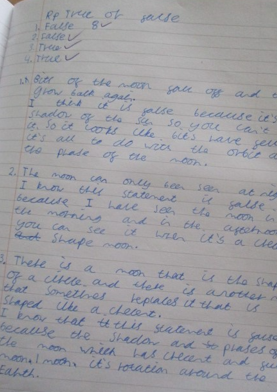 RP True or false
1. False B
2. False
3. True
4. True
1. Bits of the moon fall off and
grow back again.
I think it is false because it's
shadow of the sun so you can't
it. So it looks like bits have
it's all to do with the orbit
the phase of the moon.
2. The moon can only been seen at
I know this statement is false
because I have seen the moon in
the morning and in the afternoon
you can see it when it's a
shaipe moon.
3. There is a moon that is the
of a circle, and there is another
that sometimes replaces it that is
shaped like a crecent.
I know that this statement is
because the shadow and phases of
the moon which has crecent and
moon, moon. it's rotation around the
Earth.